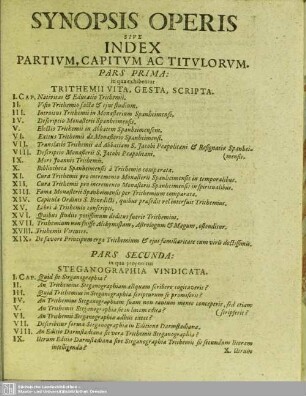 SYNOPSIS OPERIS
SIVE
INDEX
PARTIUM, CAPITUM AC TITULORUM.
PARS PRIMA:
in qua exhibentur
TRITHEMII VITA, GESTA, SCRIPTA.
I. CAP. Nativitas & Educatio Trithemii.
II. Visio Trithemio facta & ejus studium.
III. Introitus Trithemii in Monasterium Spanheimense.
IV. Descriptio Monasterii Spanheimensis.
V. Electio Trithemii in Abbatem Spanheimensem.
VI. Exitus Trithemii de Monasterio Spanheimensi.
VII. Translatio Trithemii ad Abbatiam S. Jacobi Peapolitani & Resignatio Spanheimensis.
VIII. Descriptio Monasterii S. Jacobi Peapolitani.
IX. Mors Joannis Trithemii.
X. Bibliotheca Spanheimensis à Trithemio comparata.
XI. Cura Trithemii pro incremento Monasterii Spanheimensis in temporalibus.
XII. Cura Trithemii pro incremento Monasterii Spanheimensis in spiritualibus.
XIII. Fama Monasterii Spanheimensis per Trithemium comparata.
XIV. Capitula Ordinis S. Benedicti, quibus præsidis vel interfuit Trithemius.
XV. Libri à Trithemio conscripti.
XVI. Quibus studiis potissimum deditus fuerit Trithemius.
XVII. Trithemium non fuisse Alchymistam, Astrologum & Magum, ostenditur.
XVIII. Trithemii Virtutes.
XIX. De favore Principum erga Trithemium & ejus familiaritate cum viris doctissimis.
PARS SECUNDA:
in qua proponitur
STEGANOGRAPHIA VINDICATA.
I. CAP. Quid sit Steganographia?
II. An Trithemius Steganographiam aliquam scribere cogitaverit?
III. Quid Trithemius in Steganographia scripturum se promiserit?
IV. An Trithemius Steganographiam suam non tantum mente conceperit, sed etiam scripserit?
V. An Trithemii Steganographia sit in lucem edita?
VI. An Trithemii Steganographia adhuc extet?
VII. Describitur forma Steganographiæ in Editione Darmstadiana.
VIII. An Editio Darmstadiana sit vera Trithemii Steganographia?
IX. Utrum Editio Darmstadiana sive Steganographia Trithemii sit secundum literam intelligenda?
X. Utrum